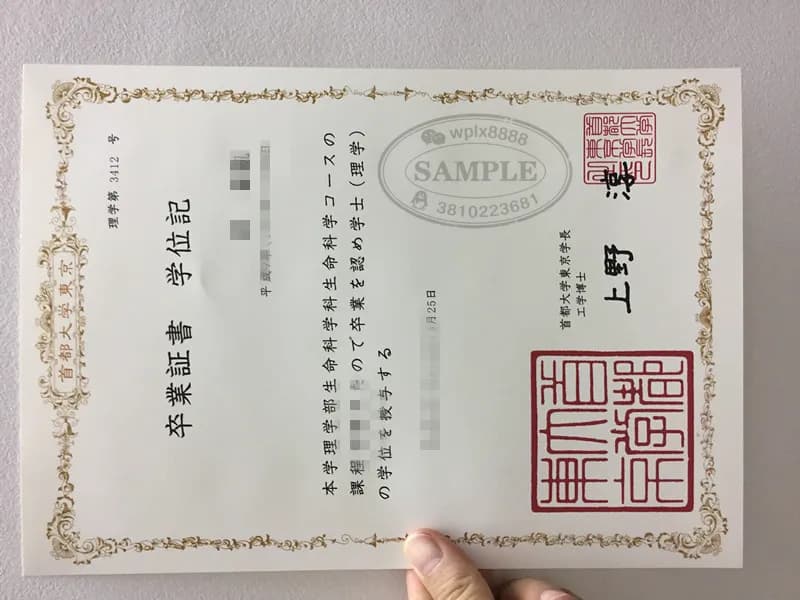 首都大学東京
理学第 3412 号
卒業証書 学位記
平成
本学理学部生命科学科生命科学コースの
課程
ので卒業を認め学士(理学)
の学位を授与する
月25日
首都大学東京学長
工学博士
上野 淳
wplx8888
SAMPLE
3810223681